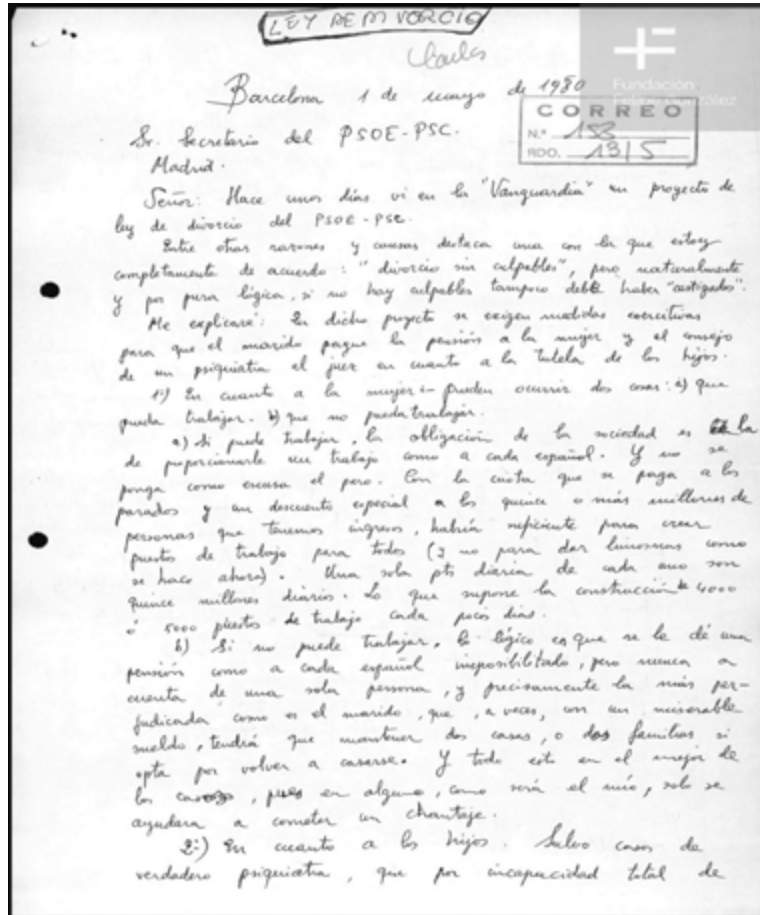 LEY DE DIVORCIO
Fundación
Barcelona 1 de marzo de 1980
CORREO
N.º 158
RDO. 13/5
Sr. Secretario del PSOE-PSC.
Madrid.
Señor: Hace unos días vi en la "Vanguardia" un proyecto de
ley de divorcio del PSOE-PSC.
Entre otras razones y causas destaca una con la que estoy
completamente de acuerdo: "divorcio sin culpables", pero naturalmente
y por pura lógica, si no hay culpables tampoco debe haber "castigados".
Me explicaré: En dicho proyecto se exigen medidas coercitivas
para que el marido pague la pensión a la mujer y el consejo
de un psiquiatra el juez en cuanto a la tutela de los hijos.
1º) En cuanto a la mujer - pueden ocurrir dos cosas: a) que
pueda trabajar. b) que no pueda trabajar.
a) Si puede trabajar, la obligación de la sociedad es la
de proporcionarle un trabajo como a cada español. Y no se
ponga como excusa el paro. Con la cuota que se paga a los
parados y un descuento especial a los quince o más millones de
personas que tenemos ingresos, habría suficiente para crear
puestos de trabajo para todos (y no para dar limosnas como
se hace ahora). Una sola pts diaria de cada uno son
quince millones diarios. Lo que supone la construcción de 4000
ó 5000 puestos de trabajo cada pocos días.
b) Si no puede trabajar, lo lógico es que se le dé una
pensión como a cada español imposibilitado, pero nunca a
cuenta de una sola persona, y precisamente la más per-
judicada como es el marido, que, a veces, con un miserable
sueldo, tendrá que mantener dos casas, o dos familias si
opta por volver a casarse. Y todo esto en el mejor de
los casos, pues en alguno, como será el mío, solo se
ayudara a cometer un chantaje.
2º) En cuanto a los hijos. Salvo casos de
verdadero psiquiatra, que por incapacidad total de